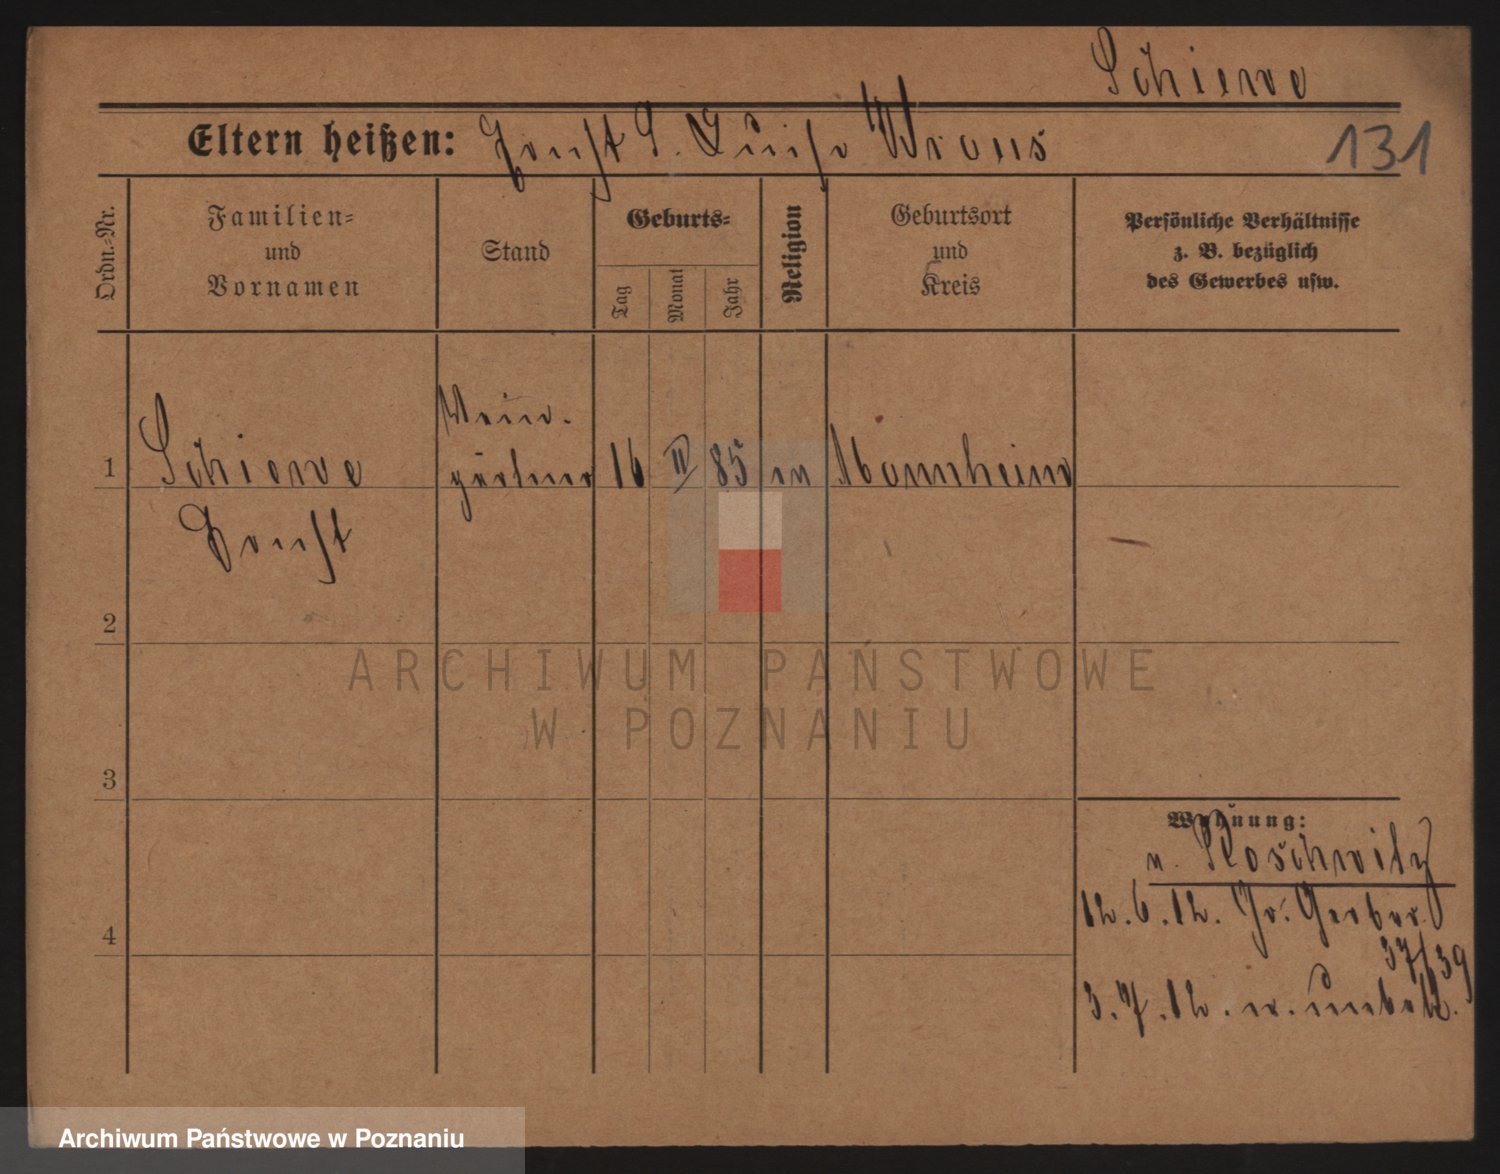 Schiewe
Eltern heißen: Ernst S. Luise Kraus
131
Ordn.=Nr.
Familien=
und
Vornamen
Stand
Geburts=
Tag
Monat
Jahr
Religion
Geburtsort
und
Kreis
Persönliche Verhältnisse
z. B. bezüglich
des Gewerbes usw.
1
Schiewe
Ernst
Wein-
gärtner
16
II
85
ev
Mannheim
2
3
4
Wohnung:
n. Roschwitz
12.6.12. Gr. Gerber.
37/39
3.7.12. n. unbek.
ARCHIWUM PAŃSTWOWE
W POZNANIU
Archiwum Państwowe w Poznaniu